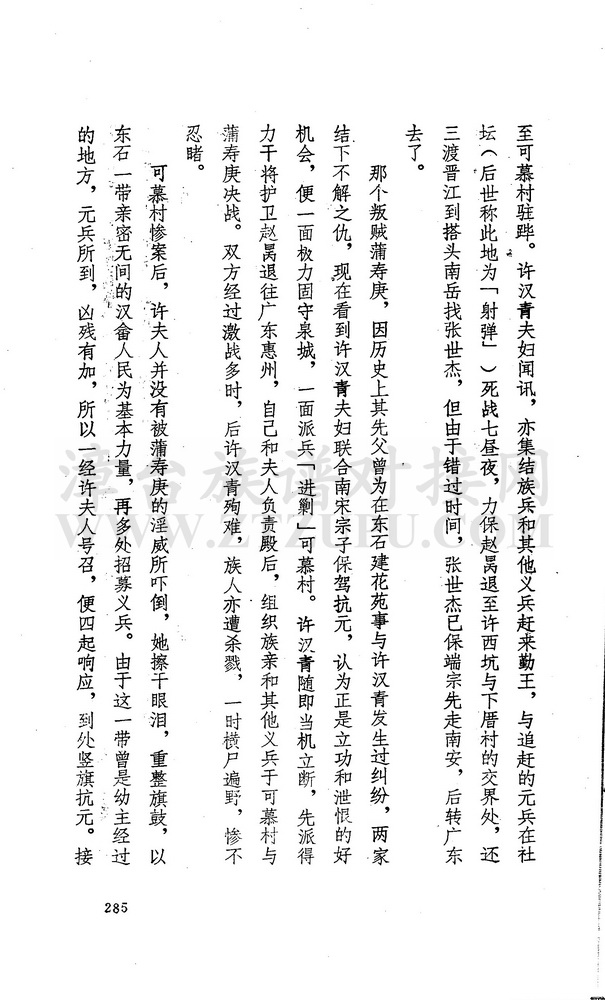 至可慕村驻跸。许汉青夫妇闻讯，亦集结族兵和其他义兵赶来勤王，与追赶的元兵在社
坛（后世称此地为「射弹」）死战七昼夜，力保赵昺退至许西坑与下厝村的交界处，还
三渡晋江到搭头南岳找张世杰，但由于错过时间，张世杰已保端宗先走南安，后转广东
去了。
那个叛贼蒲寿庚，因历史上其先父曾为在东石建花苑事与许汉青发生过纠纷，两家
结下不解之仇，现在看到许汉青夫妇联合南宋宗子保驾抗元，认为正是立功和泄恨的好
机会，便一面极力固守泉城，一面派兵「进剿」可慕村。许汉青随即当机立断，先派得
力干将护卫赵昺退往广东惠州，自己和夫人负责殿后，组织族亲和其他义兵于可慕村与
蒲寿庚决战。双方经过激战多时，后许汉青殉难，族人亦遭杀戮，一时横尸遍野，惨不
忍睹。
可慕村惨案后，许夫人并没有被蒲寿庚的淫威所吓倒，她擦干眼泪，重整旗鼓，以
东石一带亲密无间的汉畲人民为基本力量，再多处招募义兵。由于这一带曾是幼主经过
的地方，元兵所到，凶残有加，所以一经许夫人号召，便四起响应，到处竖旗抗元。接
285
漳台族谱对接网
WWW.ZTZUPU.COM